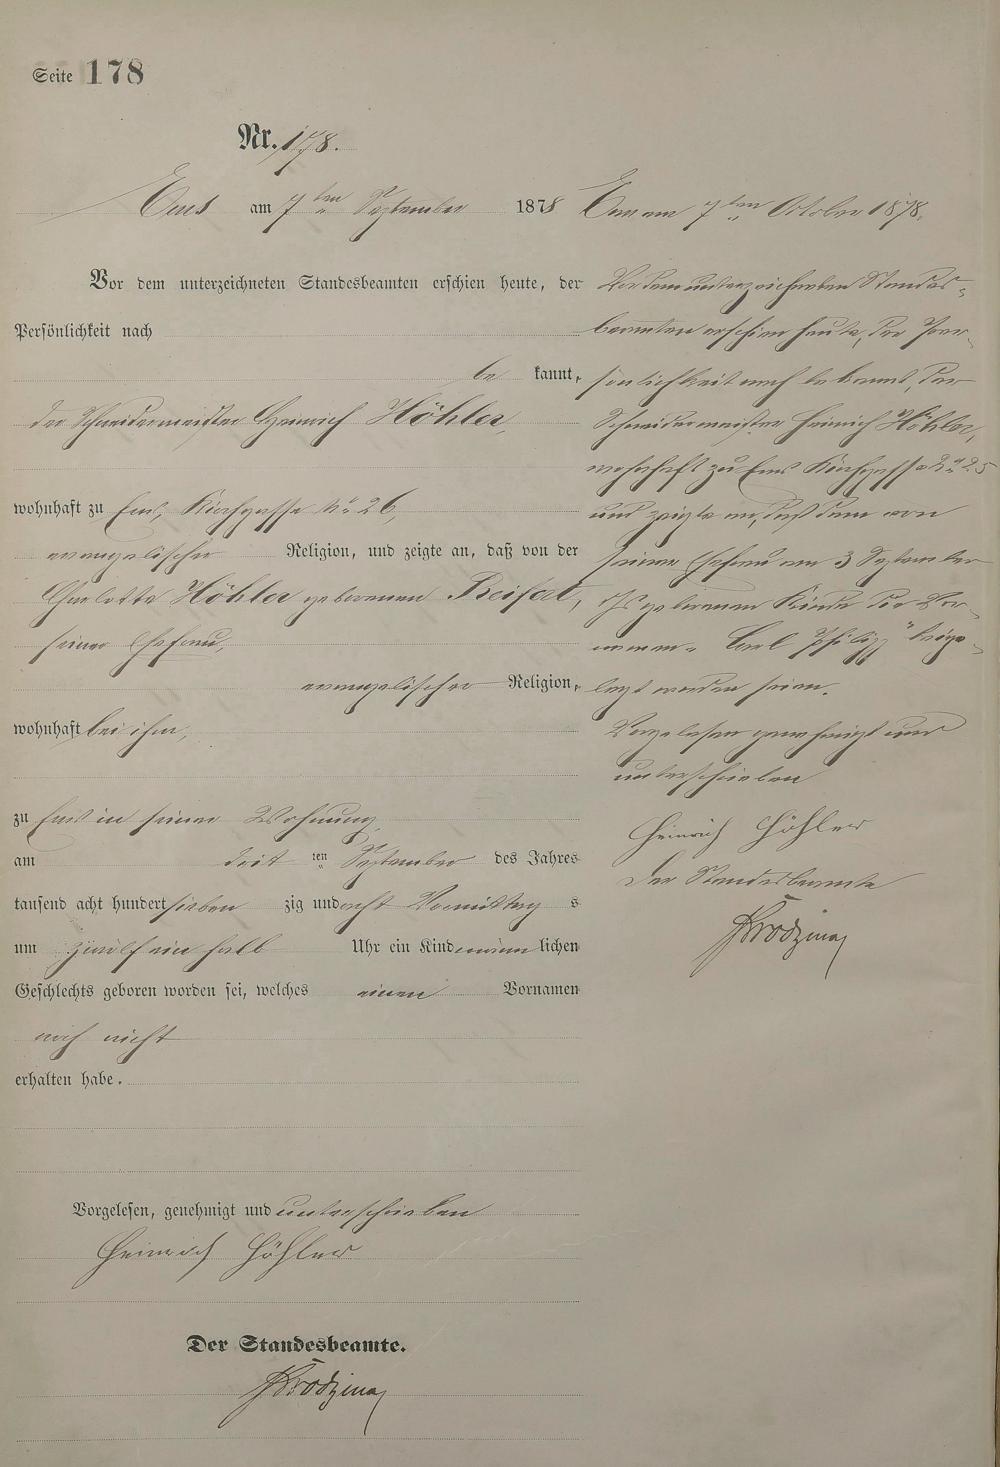 Seite 178
Nr. 178.
Ems am 7ten September 1878
Vor dem unterzeichneten Standesbeamten erschien heute, der
Persönlichkeit nach
be kannt,
der Schneidermeister Heinrich Höhler,
wohnhaft zu Ems, Kirchgasse No 26,
evangelischer Religion, und zeigte an, daß von der
Charlotte Höhler geborenen Reifert,
seiner Ehefrau,
evangelischer Religion,
wohnhaft bei ihm,
zu Ems in seiner Wohnung,
am dritten September des Jahres
tausend acht hundert sieben zig und acht Vormittag s
um zwölf ein halb Uhr ein Kind männ lichen
Geschlechts geboren worden sei, welches einen Vornamen
noch nicht
erhalten habe.
Vorgelesen, genehmigt und unterschrieben
Heinrich Höhler
Der Standesbeamte.
Ems am 7ten October 1878.
Vor dem unterzeichneten Standes=
beamten erschien heute, der Per=
sönlichkeit nach bekannt, der
Schneidermeister Heinrich Höhler,
wohnhaft zu Ems Kirchgasse No 25
und zeigte an, daß dem von
seiner Ehefrau am 3 September
geborenen Kinde die Vor=
namen "Carl Philipp" beige=
legt worden seien.
Vorgelesen genehmigt und
unterschrieben
Heinrich Höhler
Der Standesbeamte